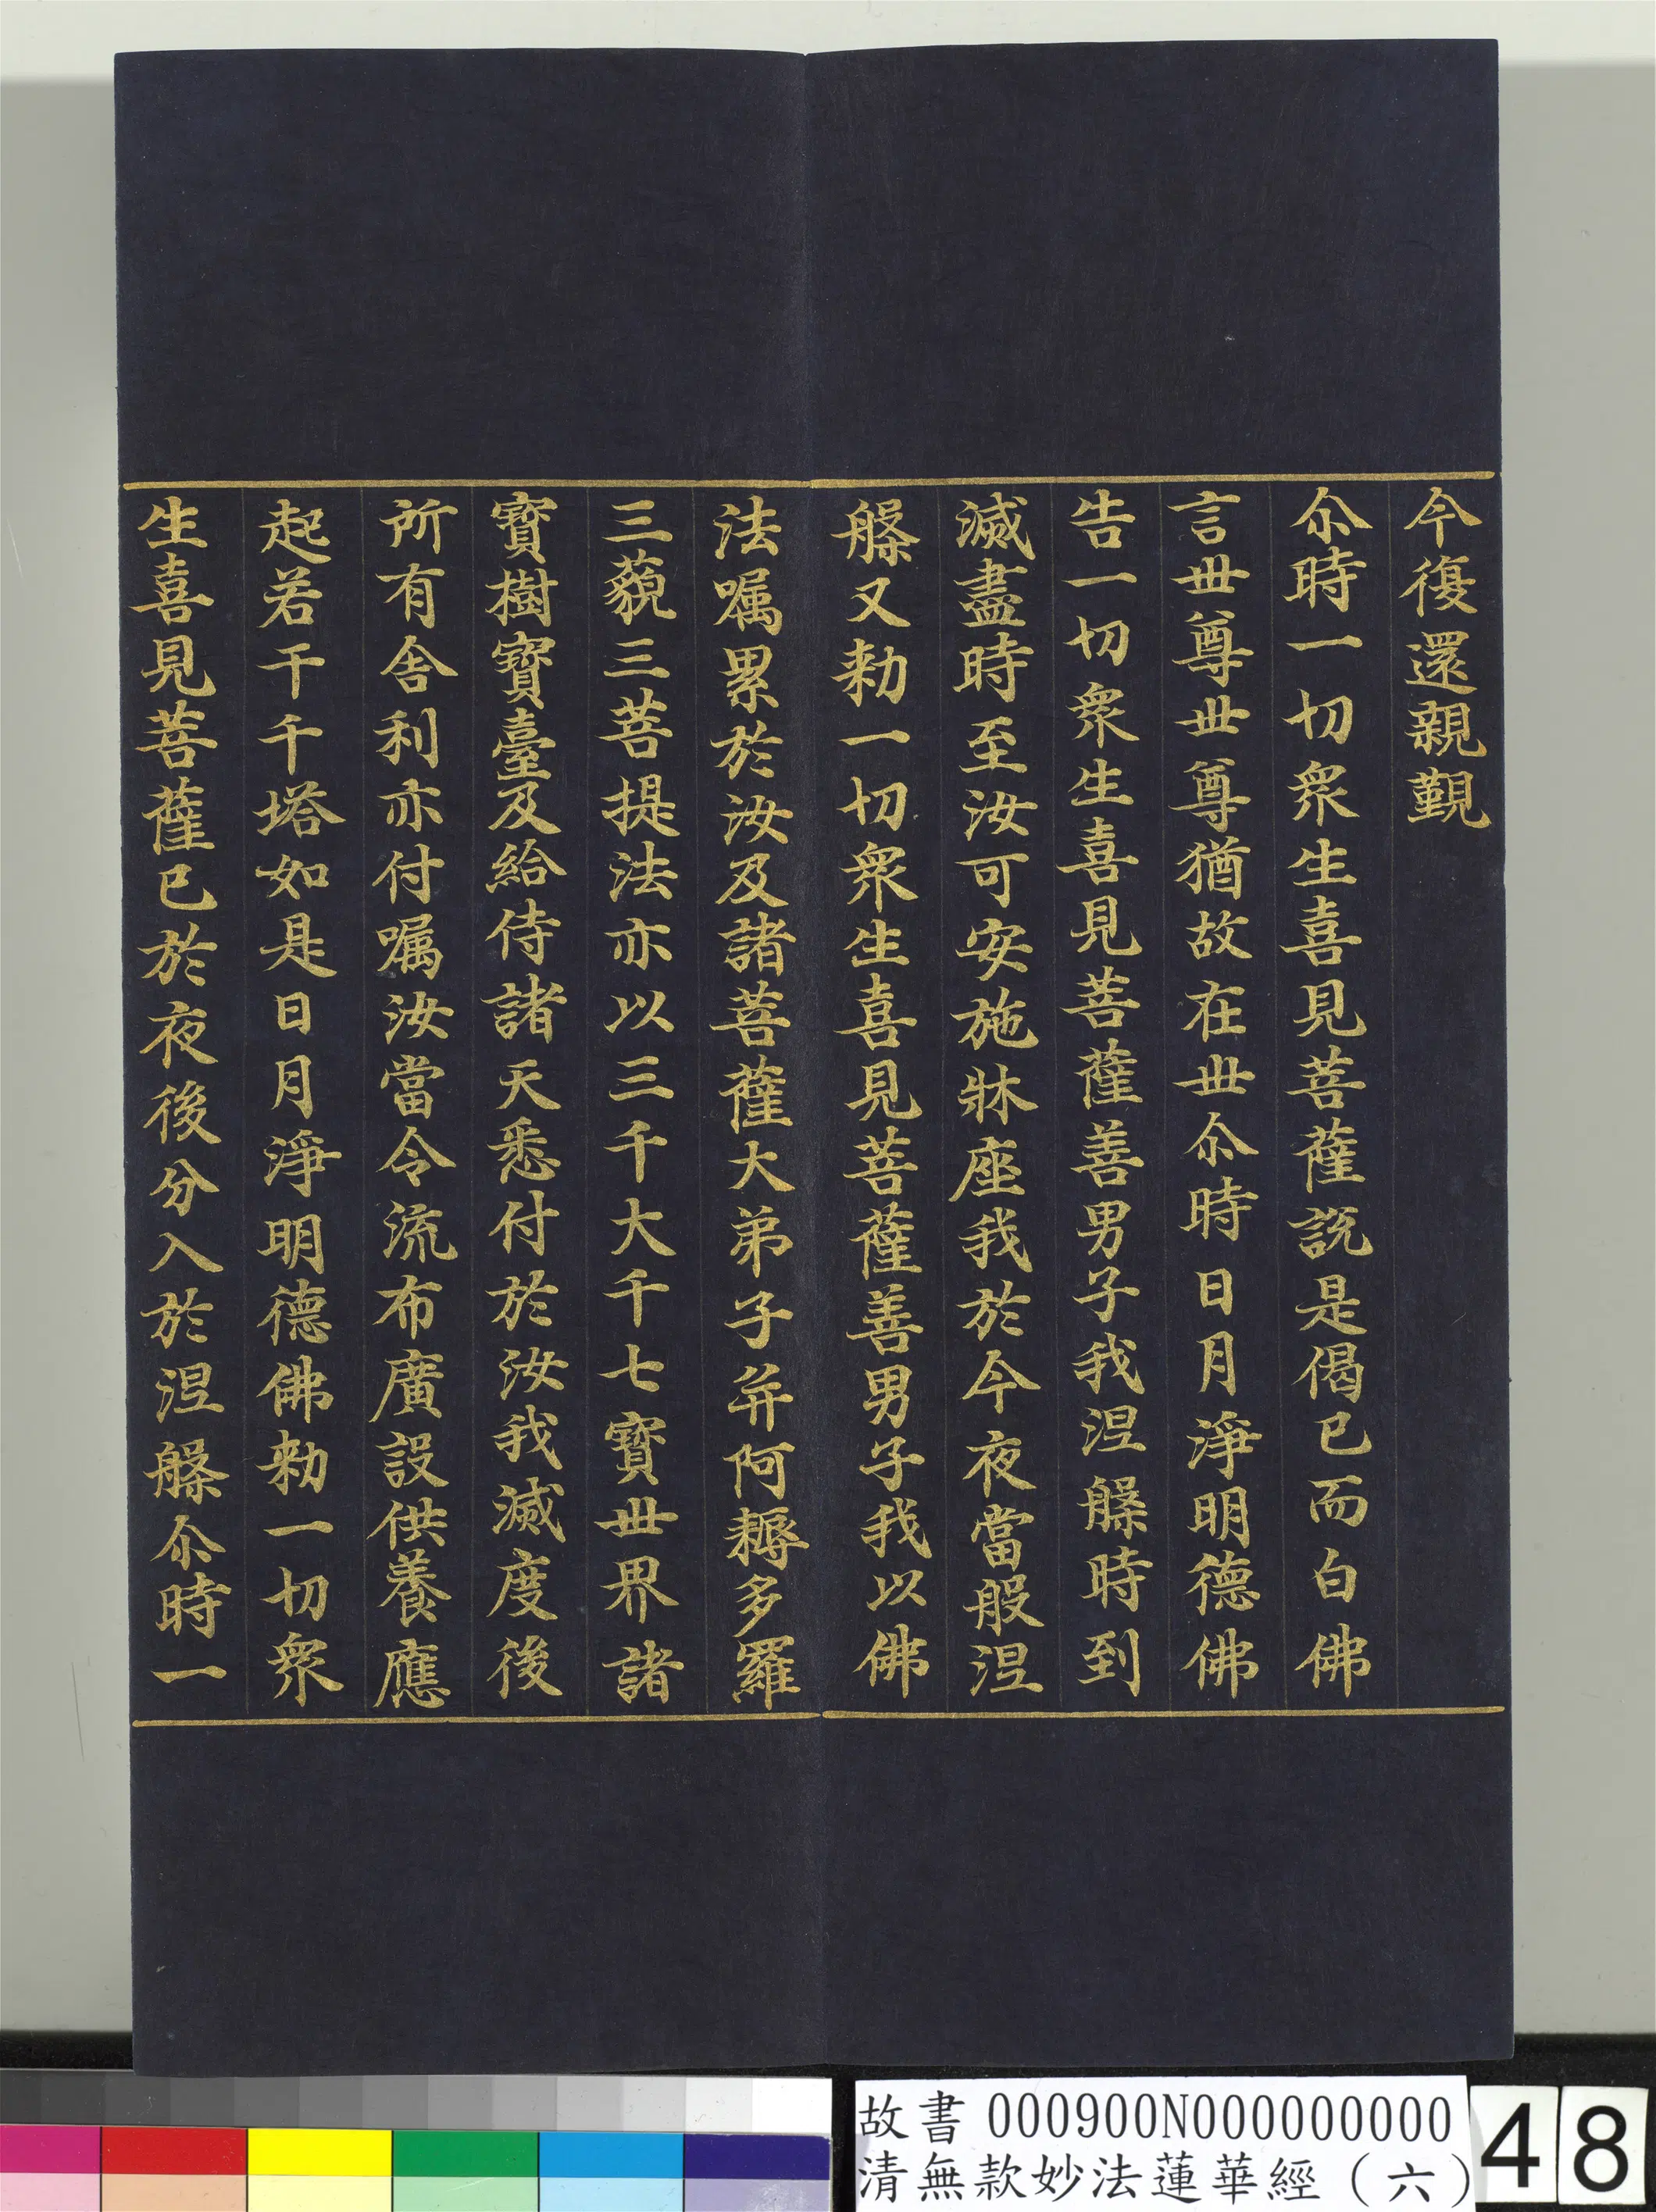 今復還親覲
尒時一切衆生喜見菩薩說是偈已而白佛
言丗尊丗尊猶故在丗尒時日月淨明德佛
告一切衆生喜見菩薩善男子我涅槃時到
滅盡時至汝可安施牀座我於今夜當般涅
槃又勑一切衆生喜見菩薩善男子我以佛
法嘱累於汝及諸菩薩大弟子并阿耨多羅
三藐三菩提法亦以三千大千七寶丗界諸
寶樹寶臺及給侍諸天悉付於汝我滅度後
所有舍利亦付嘱汝當令流布廣設供養應
起若干千塔如是日月淨明德佛勑一切衆
生喜見菩薩已於夜後分入於涅槃尒時一
故書 000900N000000000
清無款妙法蓮華經（六）
48